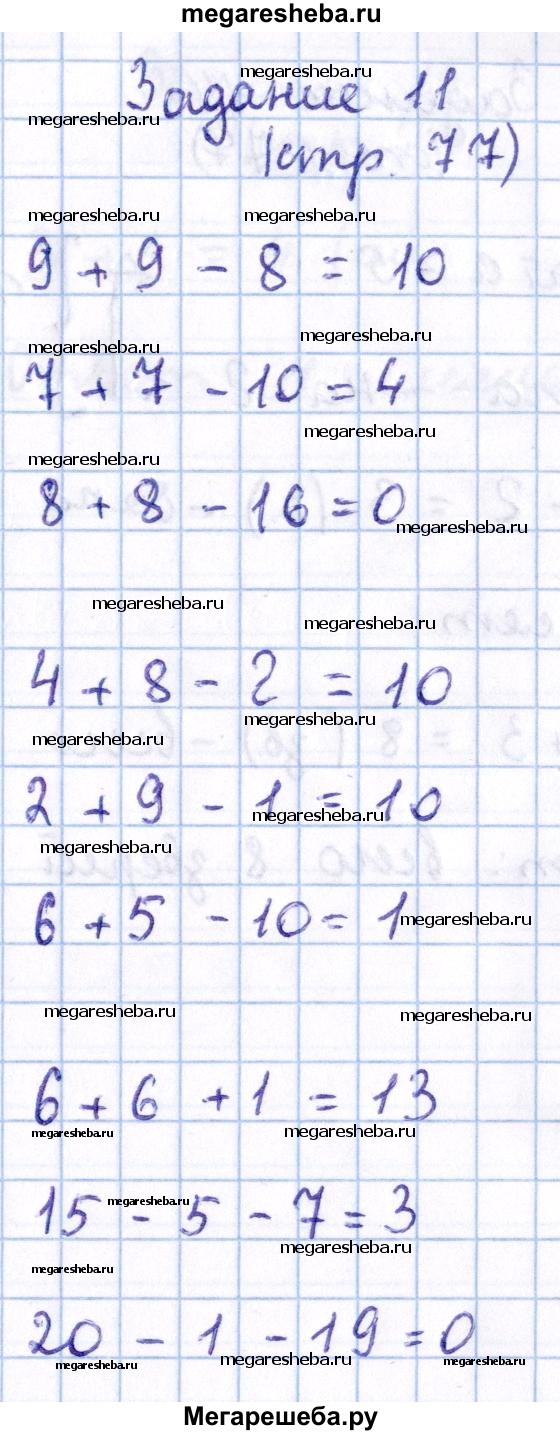 megaresheba.ru
Задание 11
megaresheba.ru
megaresheba.ru
(стр. 77)
megaresheba.ru megaresheba.ru
9 + 9 - 8 = 10
megaresheba.ru
megaresheba.ru
7 + 7 - 10 = 4
megaresheba.ru
megaresheba.ru
8 + 8 - 16 = 0
megaresheba.ru
megaresheba.ru
megaresheba.ru
4 + 8 - 2 = 10
megaresheba.ru
megaresheba.ru
2 + 9 - 1 = 10
megaresheba.ru
megaresheba.ru
6 + 5 - 10 = 1
megaresheba.ru
megaresheba.ru megaresheba.ru
6 + 6 + 1 = 13
megaresheba.ru megaresheba.ru
15 - 5 - 7 = 3
megaresheba.ru
megaresheba.ru
megaresheba.ru
20 - 1 - 19 = 0
megaresheba.ru megaresheba.ru megaresheba.ru
Мегарешеба.ру